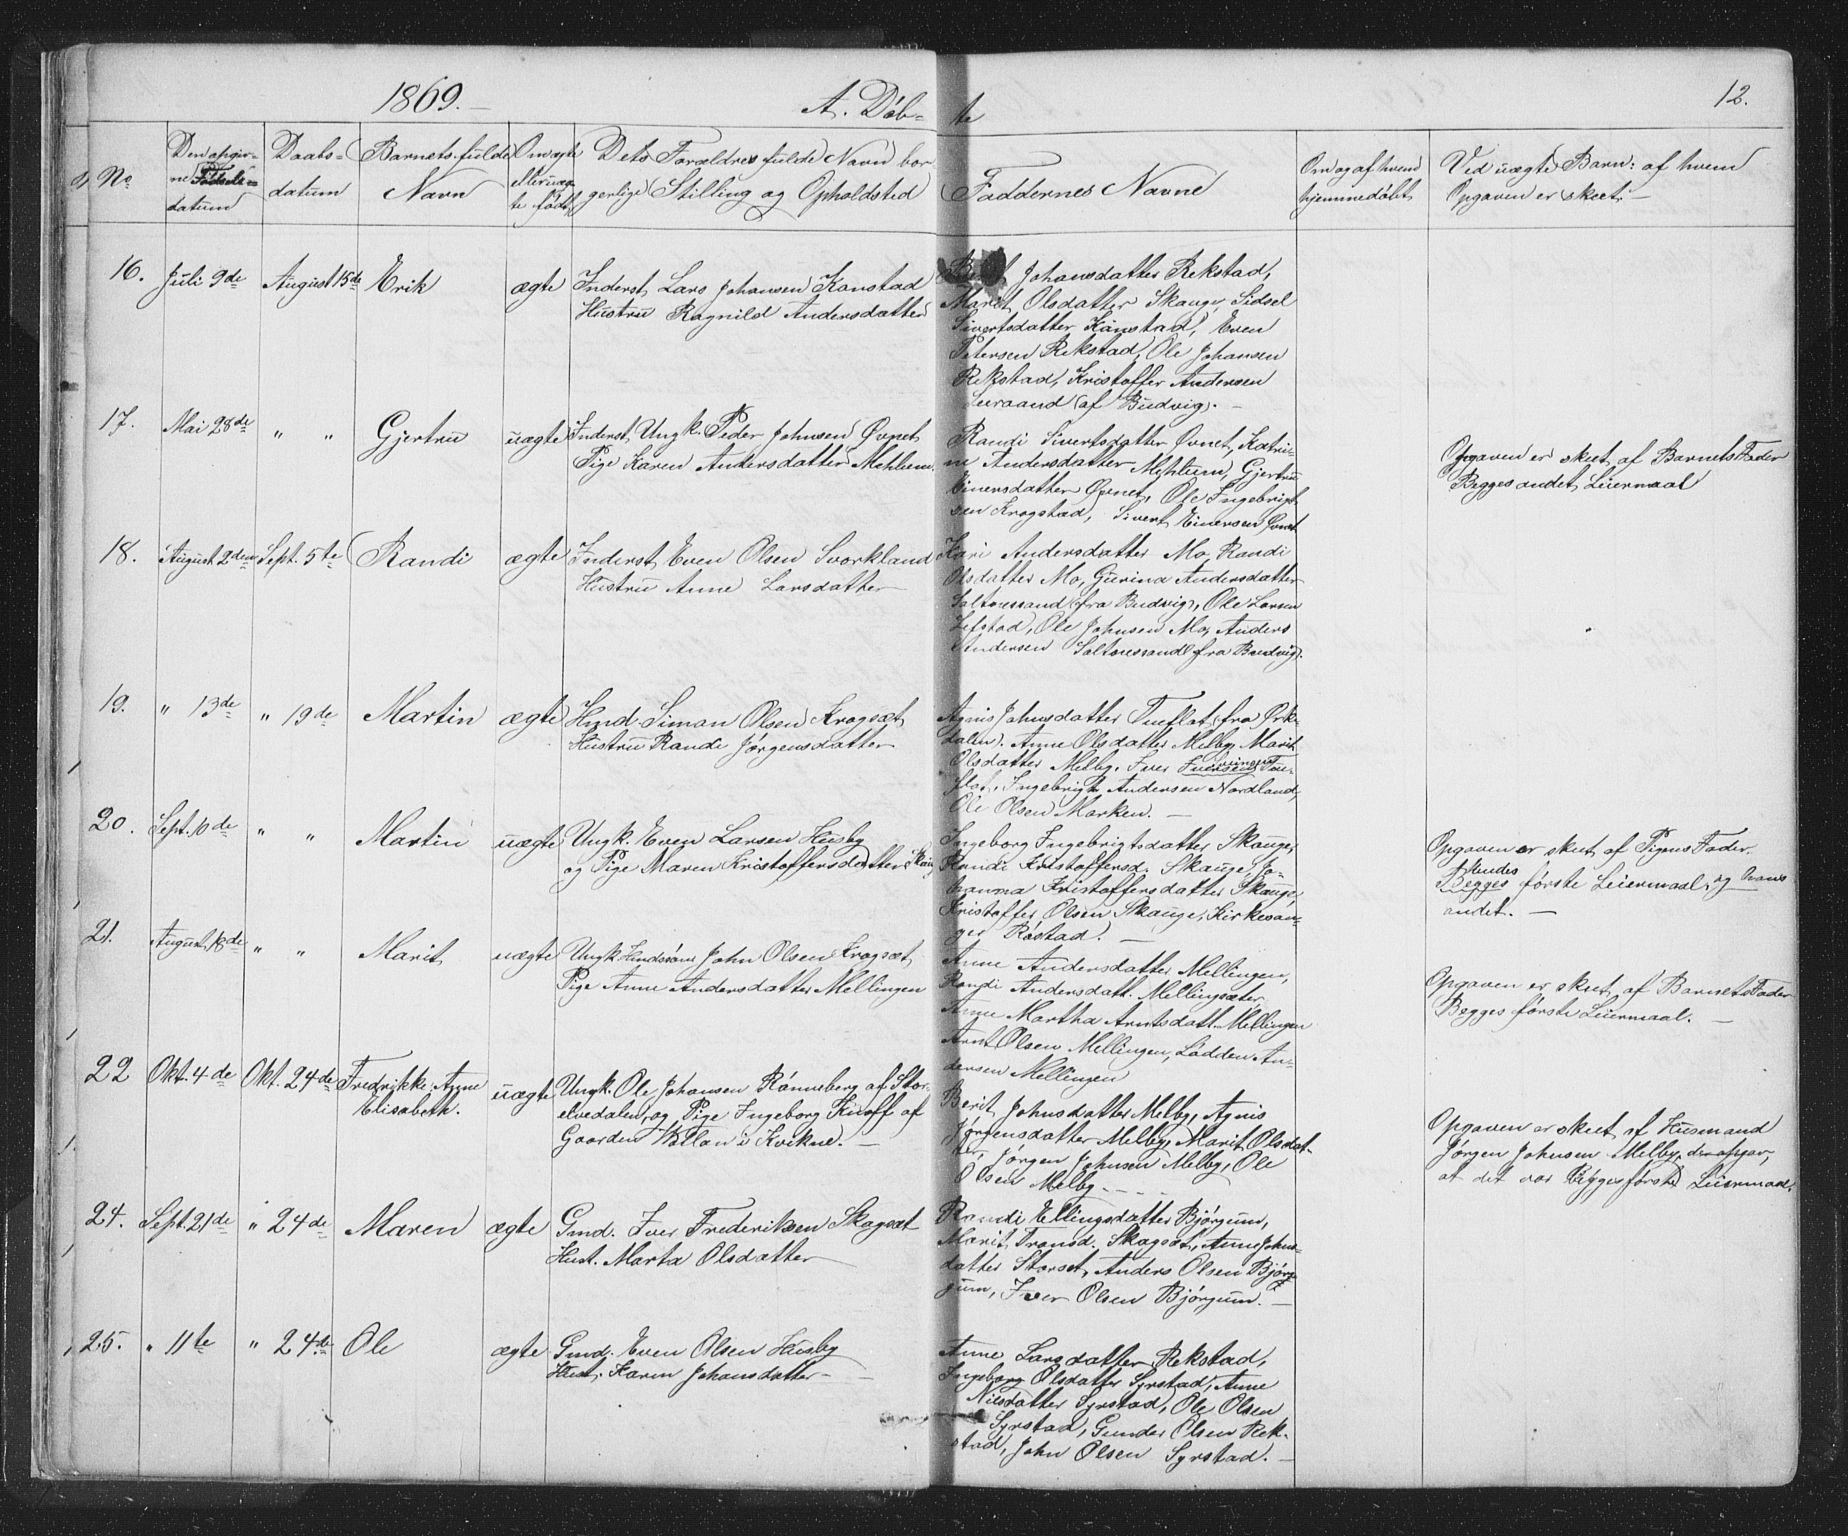 1869.
A. Döb-
te
12.
No
Den angiv-
ne Födsels-
datum
Daabs-
datum
Barnets fulde
Navn
Om ægte
eller uæg-
te født
Dets Forældres fulde Navn bor-
gerlige Stilling og Opholdsted
Faddernes Navne
Om og af hvem
hjemmedöbt
Ved uægte Barn: af hvem
Opgaven er skeet.
16. Juli 9de August 15de Erik ægte Inderst Lars Johansen Kanstad
Hustru Ragnild Andersdatter
Johansdatter Rekstad,
Marit Olsdatter Skauge, Sidsel
Sivertsdatter Kanstad, Even
Petersen Rekstad, Ole Johansen
Rekstad, Kristoffer Andersen
(af Budvig).
17. Mai 28de " " Gjertru uægte Inderst Ungk. Peder Johnsen Øvnet
Pige Karen Andersdatter Mehlum.
Randi Sivertsdatter Øvnet, Katri-
ne Andersdatter Mehlum, Gjertru
Einersdatter Øvnet, Ole Ingebrigt-
sen Krogstad, Sivert Einersen Øvnet
Opgaven er skeet af Barnets Fader
Begges andet Leiermaal
18. August 2den Sept. 5te Randi ægte Inderst Even Olsen Svorkland
Hustru Anne Larsdatter
Kari Andersdatter Mo, Randi
Olsdatter Mo, Gurina Andersdatter
Saltoressand (fra Budvig), Ole Larsen
Lefstad, Ole Johnsen Mo, Anders
Andersen Saltoressand (fra Budvig).
19. " 13de " 19de Martin ægte Hmd. Simon Olsen Krogsæt
Hustru Randi Jørgensdatter
Agnis Johnsdatter Tueflat (fra Ørk-
dalen). Anne Olsdatter Melby, Marit
Olsdatter Melby, Iver Iversen Tue-
flat, Ingebrigt Andersen Nordland,
Ole Olsen Marken.
20. Sept. 10de " " Martin uægte Ungk. Even Larsen Husby
og Pige Maren Kristoffersdatter Skaug
Ingeborg Ingebrigtsdatter Skauge,
Randi Kristoffersd. Skauge, Jo-
hanna Kristoffersdatter Skauge,
Kristoffer Olsen Skauge, Kirkesan-
ger Röstad.
Opgaven er skeet af Pigens Fader.
Hendes
Begges förste Leiermaal, og hans
andet.
21. August 18de " " Marit uægte Ungk. Hmdssøn John Olsen Krogsæt
Pige Anne Andersdatter Mellingen
Anne Andersdatter Mellingen,
Randi Andersdatt. Mellingsæter
Anne Martha Arntsdatt. Mellingen
Arnt Olsen Mellingen, Lödden An-
dersen Mellingen
Opgaven er skeet af Barnets Fader
Begges förste Leiermaal.
22 Okt. 4de Okt. 24de Fredrikke Anne
Elisabeth. uægte Ungk. Ole Johansen Rönneberg af Stor-
elvedalen, og Pige Ingeborg Knoff af
Gaarden Vollan i Kvikne.
Berit Johnsdatter Melby, Agnis
Jørgensdatter Melby, Marit Olsdat-
ter, Jørgen Johnsen Melby, Ole
Olsen Melby
Opgaven er skeet af Husmand
Jørgen Johnsen Melby, der opgav,
at det var Begges förste Leiermaal.
24. Sept. 21de " 24de Maren ægte Gmd. Iver Frederiksen Skagsæt
Hust. Marta Olsdatter
Randi Ellingsdatter Bjørgum,
Marit Transd. Skagsæt, Anne Johns-
datter Storset, Anders Olsen Bjør-
gum, Iver Olsen Bjørgum.
25. " 11te " 24de Ole ægte Gmd. Even Olsen Husby
Hust. Karen Johansdatter
Anne Larsdatter Rekstad,
Ingeborg Olsdatter Syrstad, Anne
Nilsdatter Syrstad, Ole Olsen
Syrstad, Gunder Olsen Rek-
stad, John Olsen Syrstad.